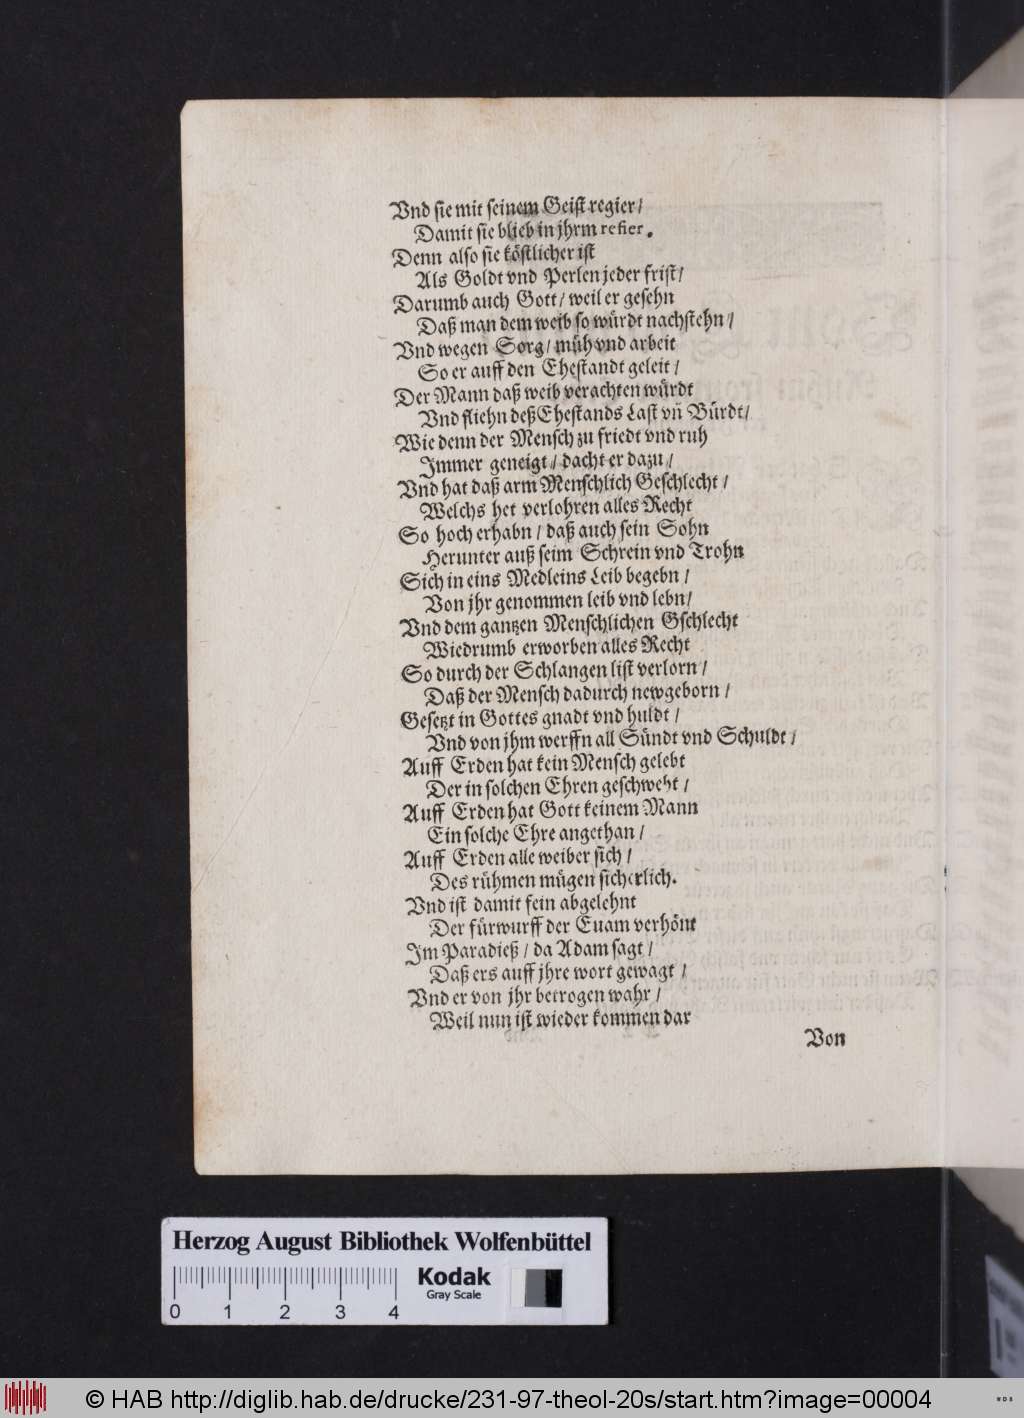 Vnd sie mit seinem Geist regier/
Damit sie blieb in jhrm refier.
Denn also sie köstlicher ist
Als Goldt vnd Perlen jeder frist/
Darumb auch Gott/ weil er gesehn
Daß man dem weib so würdt nachstehn/
Vnd wegen Sorg/ müh vnd arbeit
So er auff den Ehestandt geleit/
Der Mann daß weib verachten würdt
Vnd fliehn deß Ehestands Last vñ Bürdt/
Wie denn der Mensch zu friedt vnd ruh
Jmmer geneigt/ dacht er dazu/
Vnd hat daß arm Menschlich Geschlecht/
Welchs het verlohren alles Recht
So hoch erhabn/ daß auch sein Sohn
Herunter auß seim Schrein vnd Trohn
Sich in eins Medleins Leib begebn/
Von jhr genommen leib vnd lebn/
Vnd dem gantzen Menschlichen Gschlecht
Wiedrumb erworben alles Recht
So durch der Schlangen list verlorn/
Daß der Mensch dadurch newgeborn/
Gesetzt in Gottes gnadt vnd huldt/
Vnd von jhm werffn all Sündt vnd Schuldt/
Auff Erden hat kein Mensch gelebt
Der in solchen Ehren geschwebt/
Auff Erden hat Gott keinem Mann
Ein solche Ehre angethan/
Auff Erden alle weiber sich/
Des rühmen mügen sicherlich.
Vnd ist damit fein abgelehnt
Der fürwurff der Euam verhönt
Jm Paradieß/ da Adam sagt/
Daß ers auff jhre wort gewagt/
Vnd er von jhr betrogen wahr/
Weil nun ist wieder kommen dar
Von
Herzog August Bibliothek Wolfenbüttel
0 1 2 3 4
Kodak
Gray Scale
© HAB http://diglib.hab.de/drucke/231-97-theol-20s/start.htm?image=00004